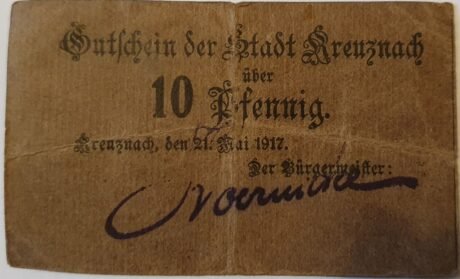 Gutschein der Stadt Kreuznach
über
10 Pfennig.
Kreuznach, den 21. Mai 1917.
Der Bürgermeister: